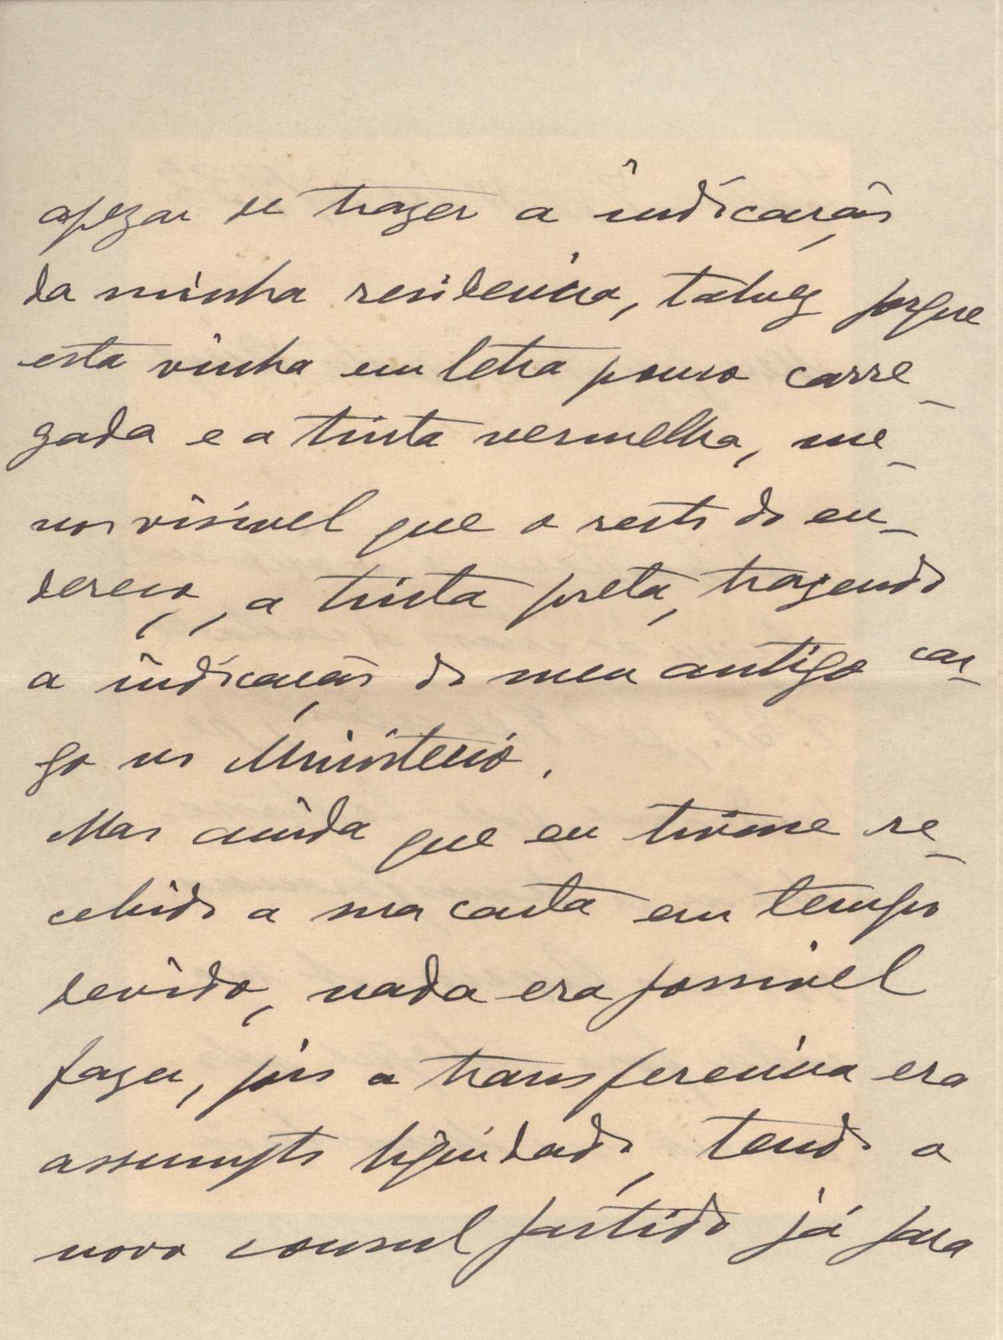 apezar de trazer a indicação
da minha residencia, talvez porque
esta vinha em letra pouco carre-
gada e a tinta vermelha, me-
nos visivel que o resto do en-
dereço, a tinta preta, trazendo
a indicação do meu antigo car-
go no Ministerio.
Mas ainda que eu tivesse re-
cebido a sua carta em tempo
devido, nada era possivel
fazer, pois a transferencia era
assumpto liquidado, tendo o
novo consul partido já para